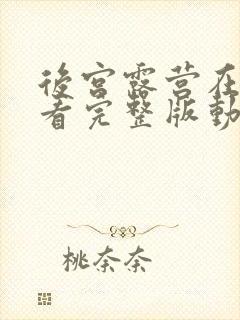 後宮露营在
看完整版動
桃奈奈